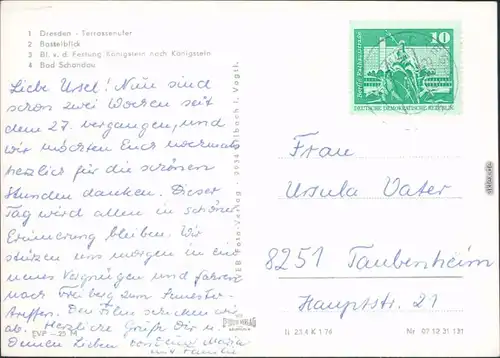 1 Dresden - Terrassenufer
2 Basteiblick
3 Bl. v. d. Festung Königstein nach Königstein
4 Bad Schandau
Liebe Ursel! Nun sind
schon zwei Wochen seit
dem 27. vergangen, und
wir möchten Euch nochmals
herzlich für die schönen
Stunden danken. Dieser
Tag wird allen in schöner
Erinnerung bleiben. Wir
stürzen uns morgen in ein
neues Vergnügen und fahren
nach Freiberg zum Semester-
treffen. Den Film schicken wir
ab. Herzliche Grüße Dir u.
Deinen Lieben von
und Familie
EVP -,25 M
VEB Foto-Verlag 9934 Eilbach i. Vogtl.
10
Berlin, Rathausstraße
DEUTSCHE DEMOKRATISCHE REPUBLIK
Frau
Ursula Vater
8251 Taubenheim
Hauptstr. 21
VERLAG
II 23,4 K 1 76 Nr 07 12 31 121